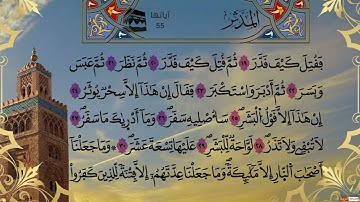 المدثر
آياتها
55
فَقُتِلَ كَيْفَ قَدَّرَ ١٩ ثُمَّ قُتِلَ كَيْفَ قَدَّرَ ٢٠ ثُمَّ نَظَرَ ٢١ ثُمَّ عَبَسَ
وَبَسَرَ ٢٢ ثُمَّ أَدْبَرَ وَاسْتَكْبَرَ ٢٣ فَقَالَ إِنْ هَٰذَآ إِلَّا سِحْرٌ يُوثَرُ ٢٤
إِنْ هَٰذَآ إِلَّا قَوْلُ الْبَشَرِ ٢٥ سَأُصْلِيهِ سَقَرَ ٢٦ وَمَآ أَدْر۪يٰكَ مَا سَقَرُ ٢٧
لَا تُبْقِے وَلَا تَذَرُ ٢٨ لَوَّاحَةٌ لِّلْبَشَرِ ٢٩ عَلَيْهَا تِسْعَةَ عَشَرَ ٣٠ وَمَا جَعَلْنَآ
أَصْحَٰبَ النّ۪ارِ إِلَّا مَلَٰٓئِكَةً وَمَا جَعَلْنَا عِدَّتَهُمُۥٓ إِلَّا فِتْنَةً لِّلذِينَ كَفَرُواْ